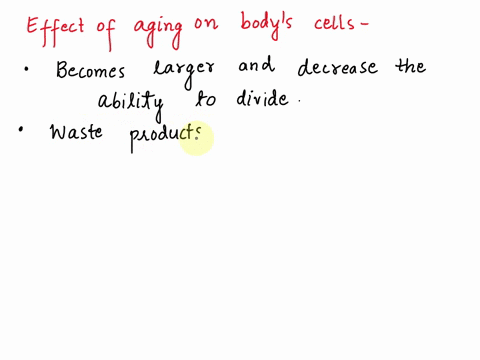 Effect of aging on body's cells -
• Becomes larger and decrease the
ability to divide.
• Waste products